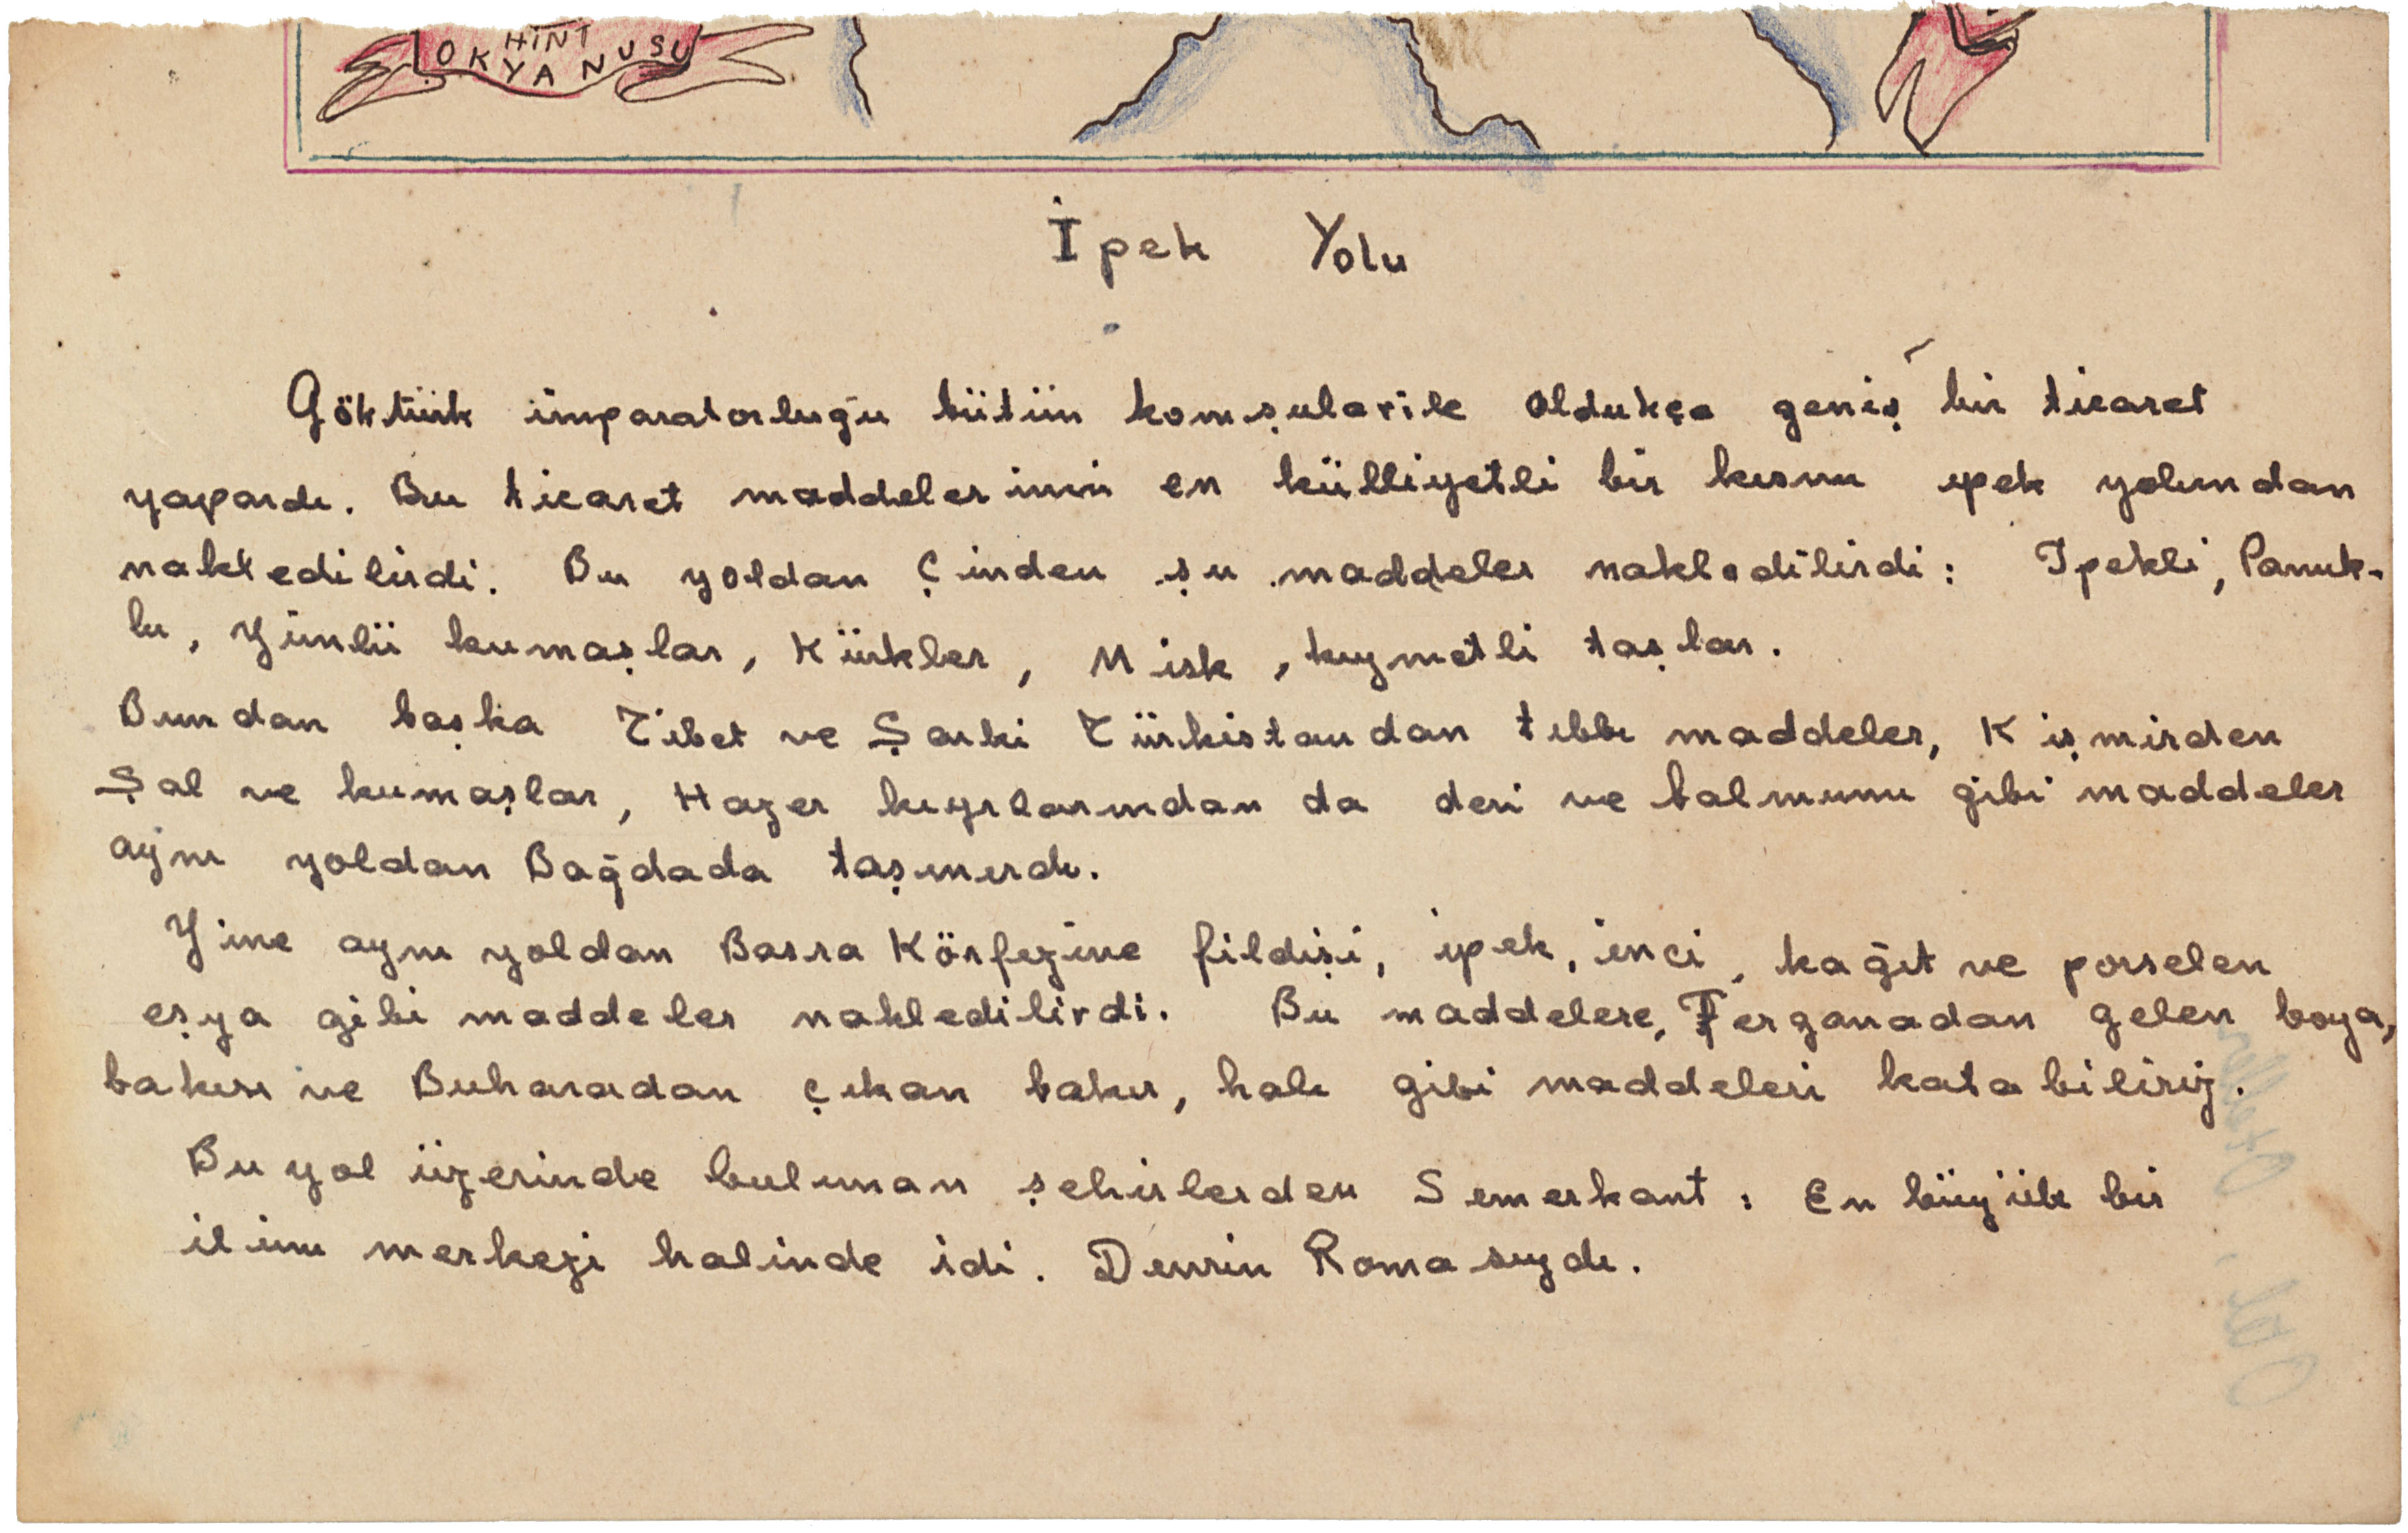 HİNT
OKYANUSU
İpek Yolu
Göktürk imparatorluğu bütün komşularile oldukça geniş bir ticaret
yapardı. Bu ticaret maddelerinin en külliyetli bir kısmı ipek yolundan
nakledilirdi. Bu yoldan Çinden şu maddeler nakledilirdi: İpekli, Pamuk-
lu, Yünlü kumaşlar, Kürkler, Misk, kıymetli taşlar.
Bundan başka Tibet ve Şarki Türkistandan tıbbı maddeler, Kişmirden
Şal ve kumaşlar, Hazer kıyılarından da deri ve balmumu gibi maddeler
aynı yoldan Bağdada taşınırdı.
Yine aynı yoldan Basra Körfezine fildişi, ipek, inci, kağıt ve porselen
eşya gibi maddeler nakledilirdi. Bu maddelere, Ferganadan gelen boya,
bakırı ve Buharadan çıkan bakır, halı gibi maddeleri katabiliriz.
Bu yol üzerinde bulunan şehirlerden Semerkant: En büyük bir
ilim merkezi halinde idi. Devrin Romasıydı.